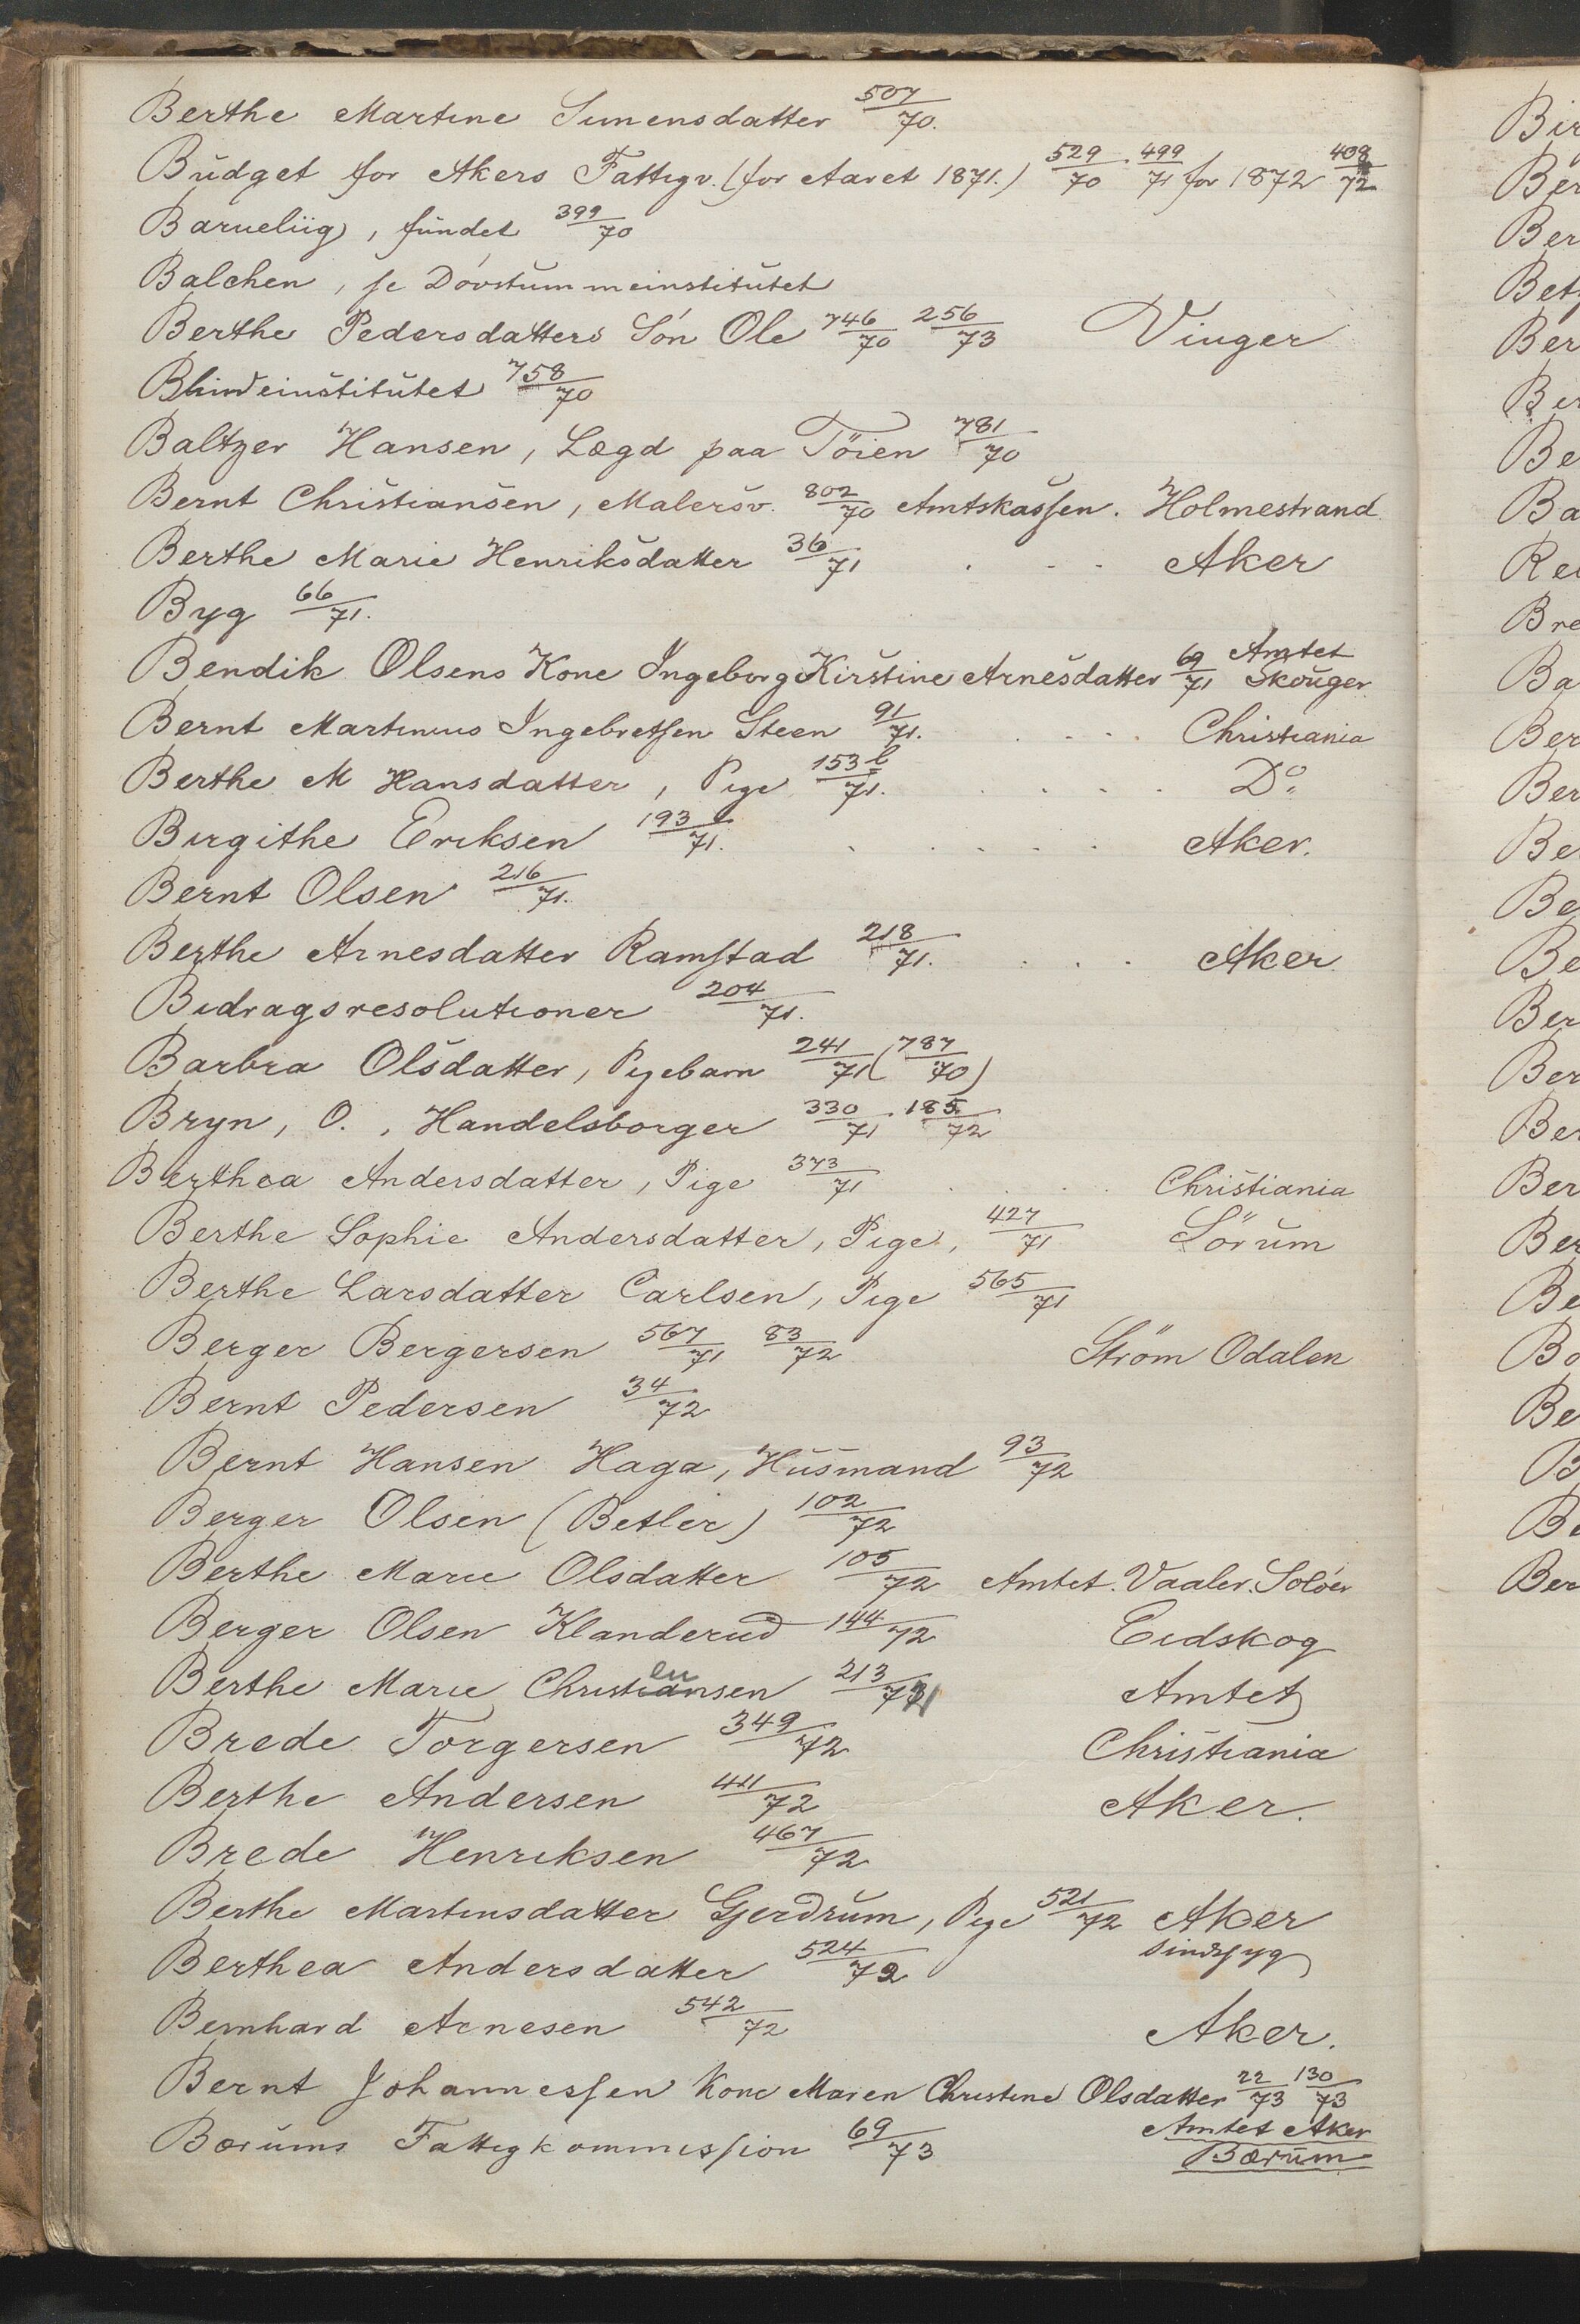 Berthe Martine Simensdatter 507/70.
Budget for Akers Fattigv. (for Aaret 1871.) 529/70 . 499/71 for 1872 408/72
Barneliig, fundet 399/70
Balchen, se Dövstummeinstitutet
Berthe Pedersdatters Sön Ole 746/70 256/73 Vinger
Blindeinstitutet 758/70
Baltzer Hansen, Lægd paa Töien 781/70
Bernt Christiansen, Malersv. 802/70 Amtskassen. Holmestrand
Berthe Marie Henriksdatter 36/71 . - - Aker
Byg 66/71.
Bendik Olsens Kone Ingeborg Kirstine Arnesdatter 69/71 Amtet Skouger
Bernt Martinius Ingebretsen Steen 91/71. . . . . Christiania
Berthe M Hansdatter, Pige 153 b/71. . . . . Do.
Birgithe Eriksen 193/71. . . . . . Aker.
Bernt Olsen 216/71.
Berthe Arnesdatter Ramstad 218/71. . . . Aker
Bidragsresolutioner 204/71.
Barbra Olsdatter, Pigebarn 241/71 (787/70)
Bryn, O., Handelsborger 330/71 . 185/72
Berthea Andersdatter, Pige 373/71 . . . . Christiania
Berthe Sophie Andersdatter, Pige, 427/71 Sörum
Berthe Larsdatter Carlsen, Pige 565/71
Berger Bergersen 567/71 83/72 Ström Odalen
Bernt Pedersen 34/72
Bernt Hansen Haga, Husmand 93/72
Berger Olsen (Betler) 102/72
Berthe Marie Olsdatter 105/72 Amtet. Vaaler. Solöer
Berger Olsen Klanderud 144/72 Eidskog
Berthe Marie Christiansen 213/71 Amtet
Brede Torgersen 349/72 Christiania
Berthe Andersen 411/72 Aker.
Brede Henriksen 467/72
Berthe Martinsdatter Gjerdrum, Pige 521/72 Aker
Berthea Andersdatter 524/72 sindssyg
Bernhard Arnesen 542/72 Aker.
Bernt Johannessen Kone Maren Christine Olsdatter 22/73 130/73
Amtet Aker
Bærums Fattigkommission 69/73 Bærum
Bir
Ber
Ber
Bet
Ber
Ber
Be
Ba
Re
Bre
Ba
Ber
Ber
Be
Be
Be
Ber
Ber
Ber
Ber
Ber
Be
Bo
Be
B
Be
Ber